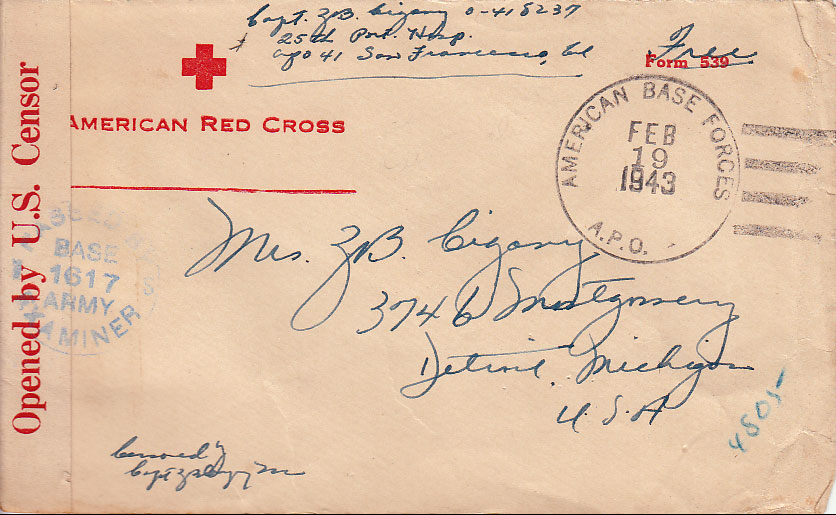 Capt. Z.B. Cigany O-418237
25th Port. Hosp.
apo 41 San Francesco, Cal
Free
Form 539
AMERICAN RED CROSS
Opened by U.S. Censor
AMERICAN BASE FORCES
FEB
19
1943
A.P.O.
PASSED BY
BASE
1617
ARMY
EXAMINER
Mrs. Z.B. Cigany
3746 Montgomery
Detroit, Michigan
U.S.A
4805
Censored by